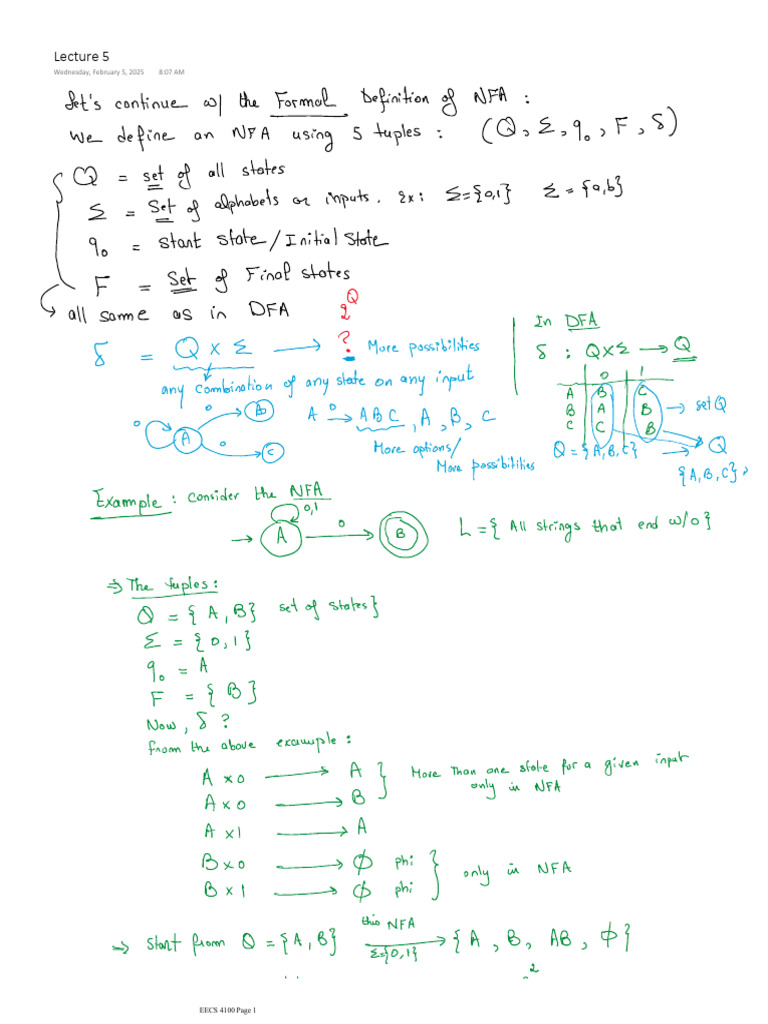 Lecture 5
Wednesday, February 5, 2025 8:07 AM
Let's continue w/ the Formal Definition of NFA :
We define an NFA using 5 tuples : (Q, Σ, q₀, F, δ)
Q = set of all states
Σ = Set of alphabets or inputs. Ex: Σ={0,1} Σ={a,b}
q₀ = Start state / Initial State
F = Set of Final states
all same as in DFA
2^Q
δ = Q × Σ ⟶ ? More possibilities
any combination of any state on any input
0 0 B
A
0 C
A 0→ ABC, A, B, C
More options/
More possibilities
In DFA
δ : Q×Σ ⟶ Q
0 1
A B C
B A B → set Q
C C B
Q = {A,B,C} → Q
{A,B,C},
Example : Consider the NFA
0,1
→ A 0 B L = { All strings that end w/0}
⇒ The tuples :
Q = { A, B} set of states}
Σ = {0,1}
q₀ = A
F = { B}
Now, δ ?
from the above example :
A × 0 ⟶ A
A × 0 ⟶ B } More Than one state for a given input
only in NFA
A × 1 ⟶ A
B × 0 ⟶ ϕ phi
B × 1 ⟶ ϕ phi } only in NFA
⇒ Start from Q = {A, B} this NFA ⟶ Σ={0,1} { A , B, AB, ϕ}
2
EECS 4100 Page 1